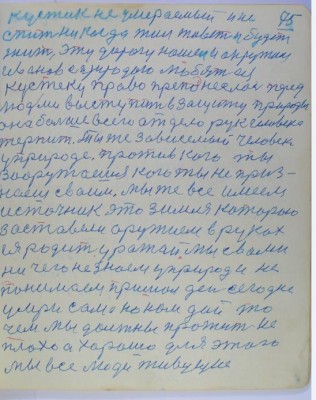 кустик не умираемый и не 95
спит никогда жил таков и будет
жить, эту дорогу нашему
Иванов с природою
кустеку право преподнеслось перед
людьми выступить в защиту природы
она больше всего от дело рук человека
терпит. Ты же зависемый человек
у природе. против кого ты
вооружоння кого ты не приз-
наеш своим. мы же все имеем
источник это Зимля которою
заставили оружием в руках
ея родит урожай мы с вами
ни чего не знаем у природи не
понимаем пришол ден сегодне
умри само но нам дай то
чем мы должны прожит не
плохо а хорошо для этого
мы все люди живущие